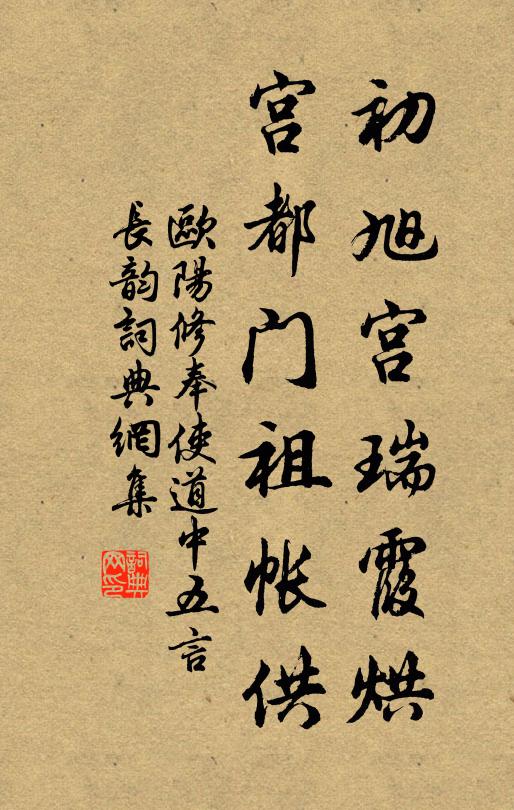 初旭宫瑞霞烘
宫都门祖帐供
歐陽修奉使道中五言
長韵詞典網集
詞典
网印